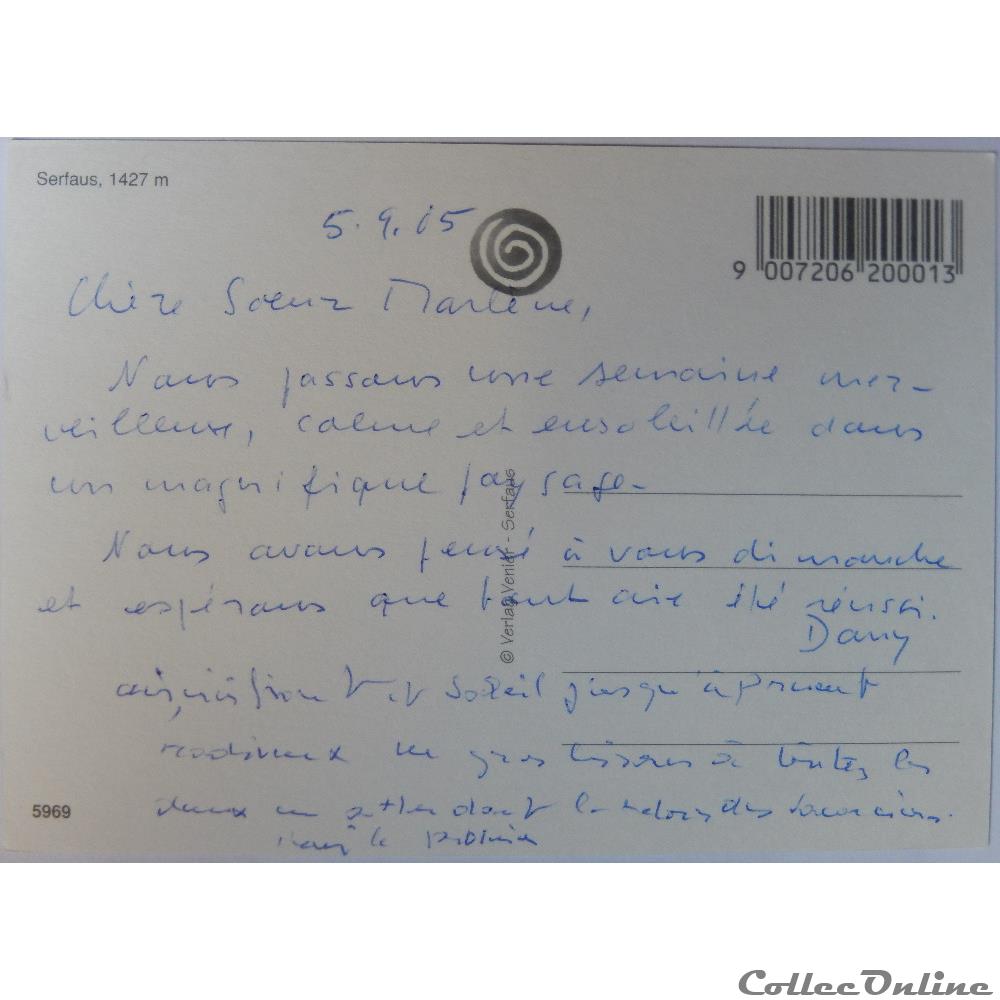 Serfaus, 1427 m
5.9.05
9 007206 200013
Chère Soeur Marlène,
Nous passons une semaine mer-
veilleuse, calme et ensoleillée dans
un magnifique paysage.
Nous avons pensé à vous dimanche
et espérons que tout aie été réussi.
Dany
© Verlag Venier - Serfaus
soleil jusqu'à présent
un gros bisous à toutes les
deux en attendant le des
5969
le
CollecOnline